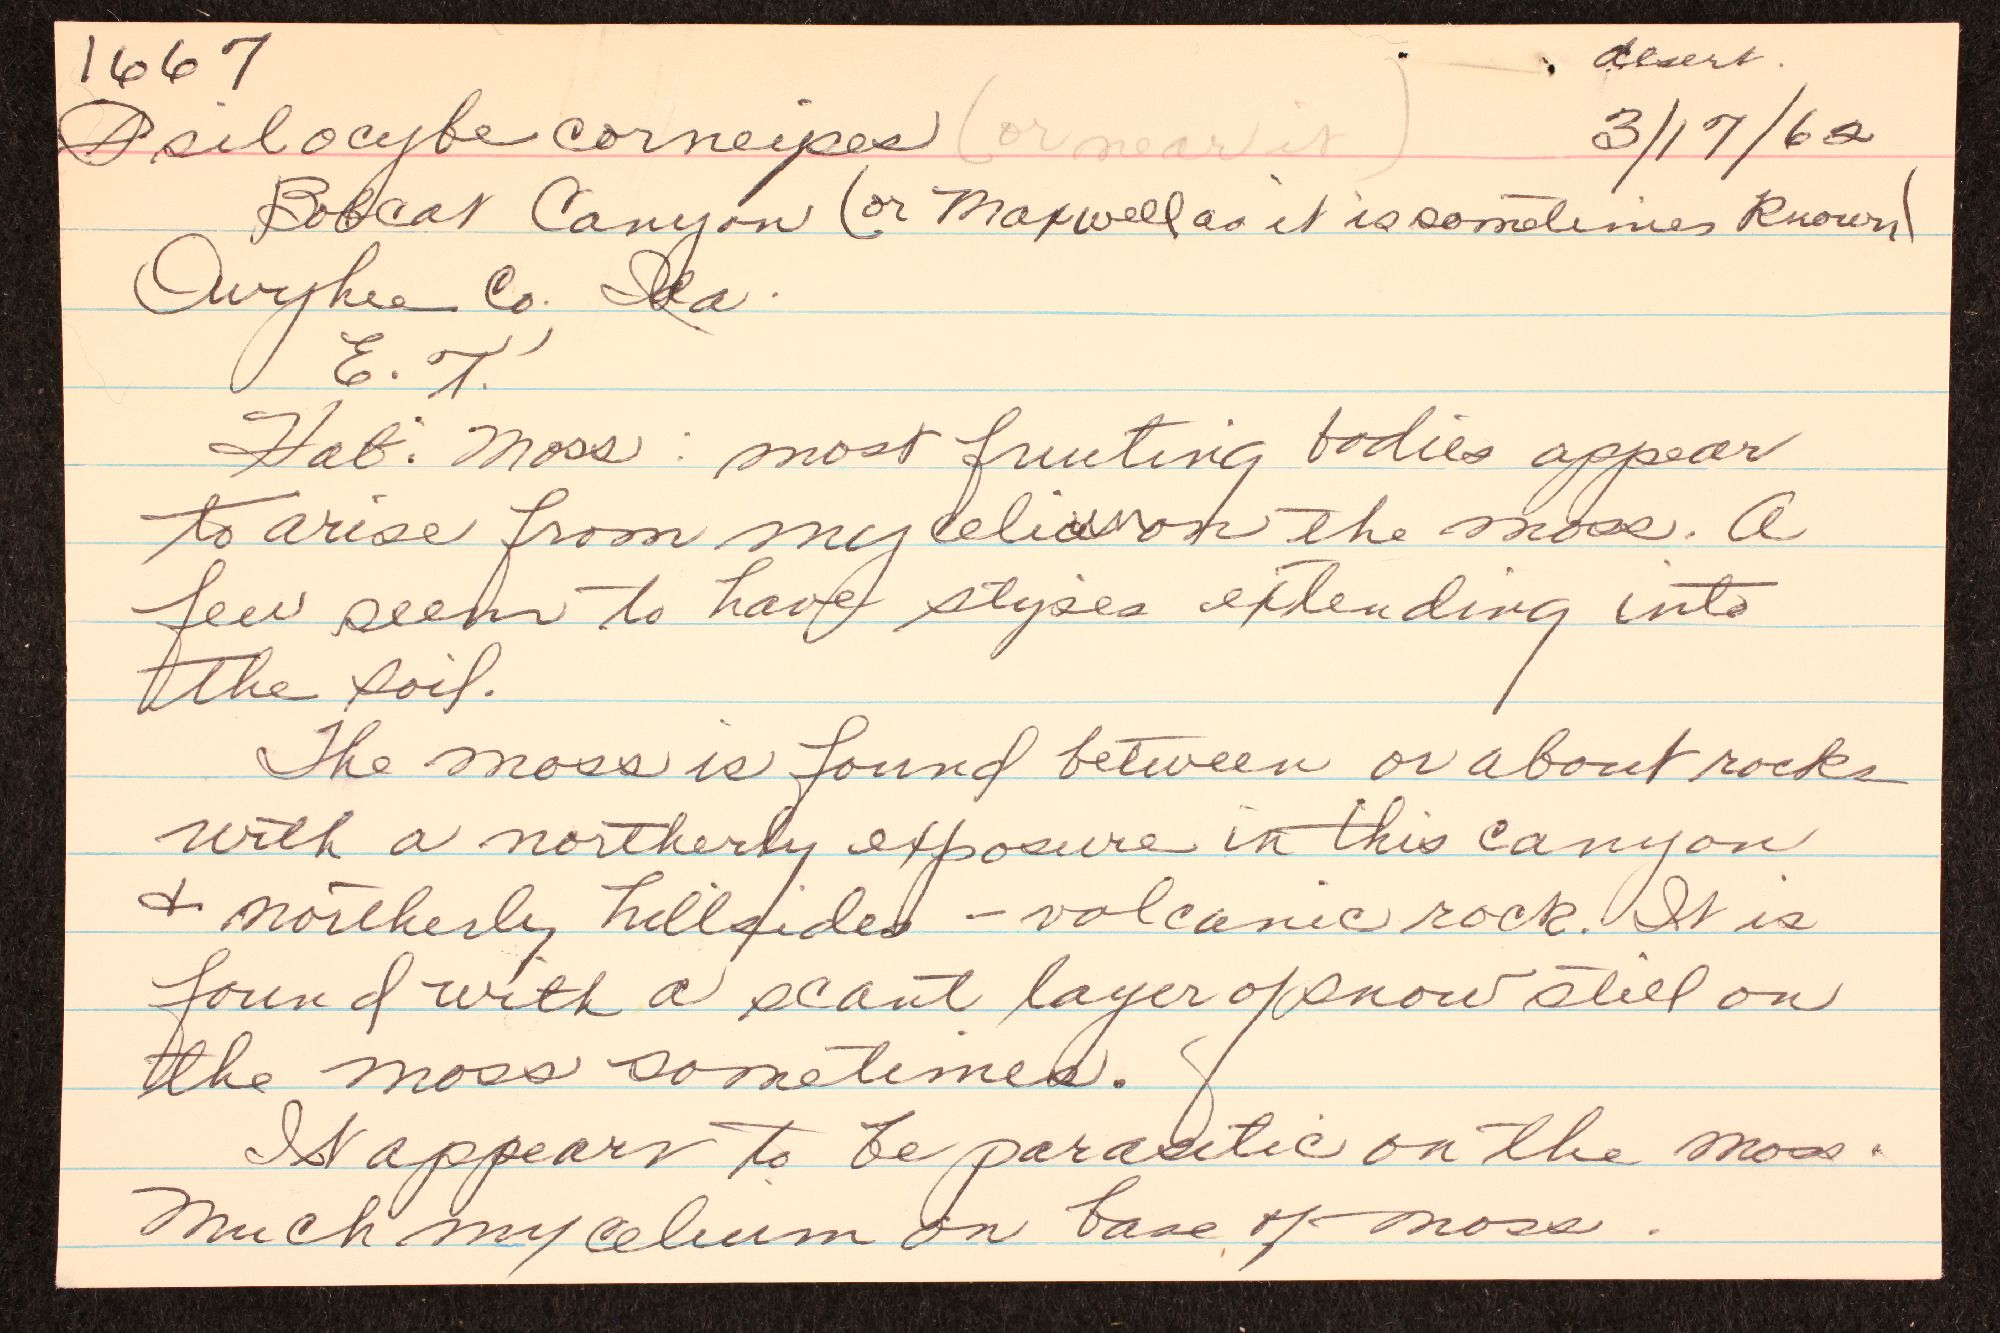 1667
desert.
Psilocybe corneipes (or near it) 3/17/62
Bobcat Canyon (or Maxwell as it is sometimes known)
Owyhee Co. Ida.
E. T.
Hab: Moss: most fruiting bodies appear
to arise from mycelium on the moss. A
few seem to have stipes extending into
the soil.
The moss is found between or about rocks
with a northerly exposure in this canyon
& northerly hillsides - volcanic rock. It is
found with a scant layer of snow still on
the moss sometimes.
It appears to be parasitic on the moss.
Much mycelium on base of moss.